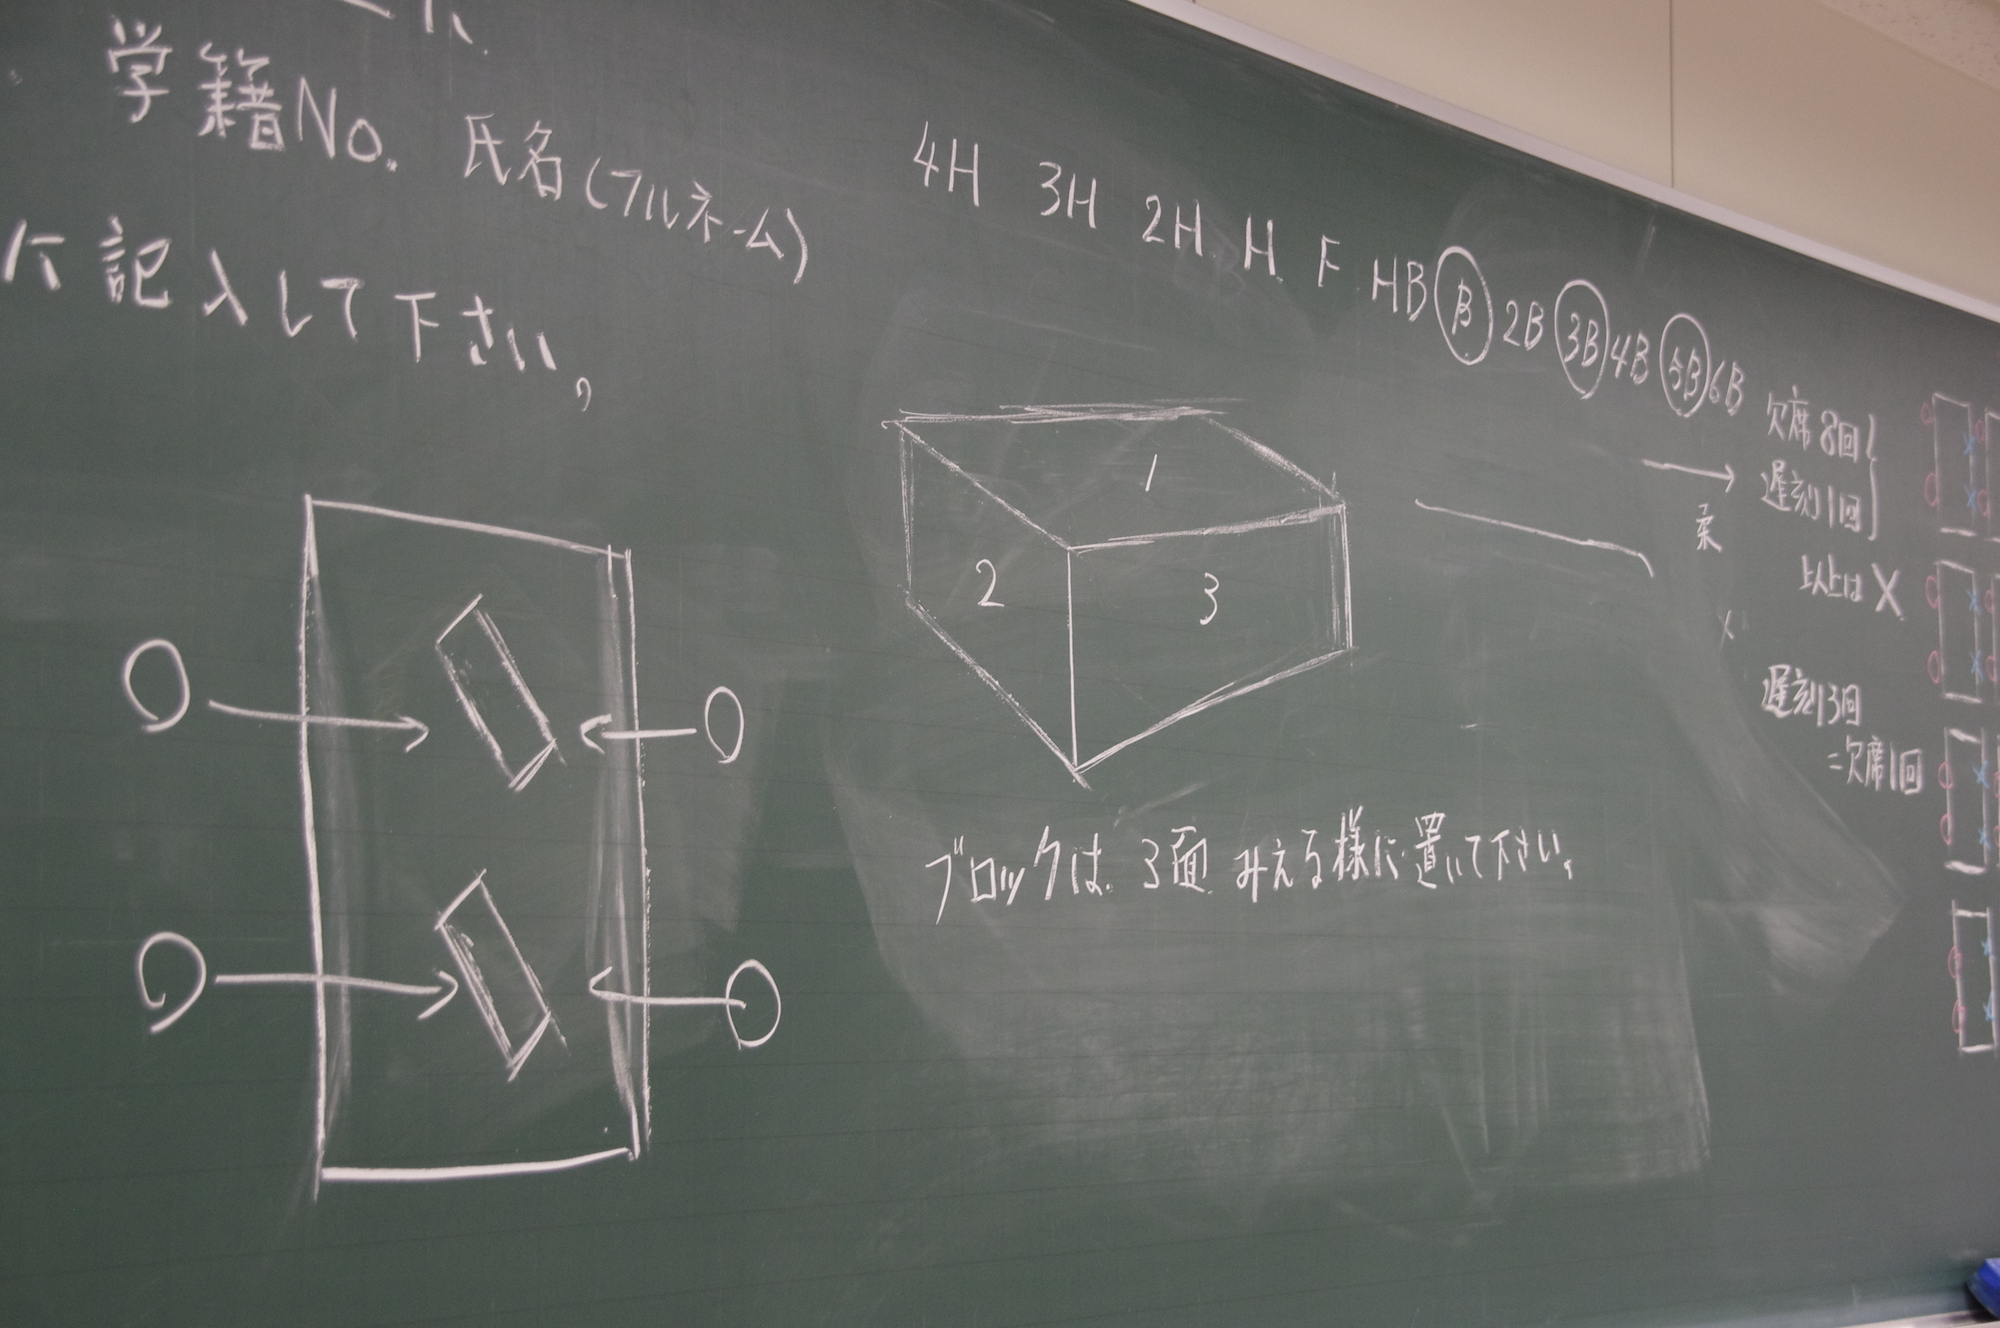 学籍No. 氏名(フルネーム)
に記入して下さい。
4H 3H 2H H F HB B 2B 3B 4B 5B 6B
1
2
3
ブロックは 3面 みえる様に置いて下さい。
欠席8回
遅刻1回
以上は X
遅刻3回
=欠席1回